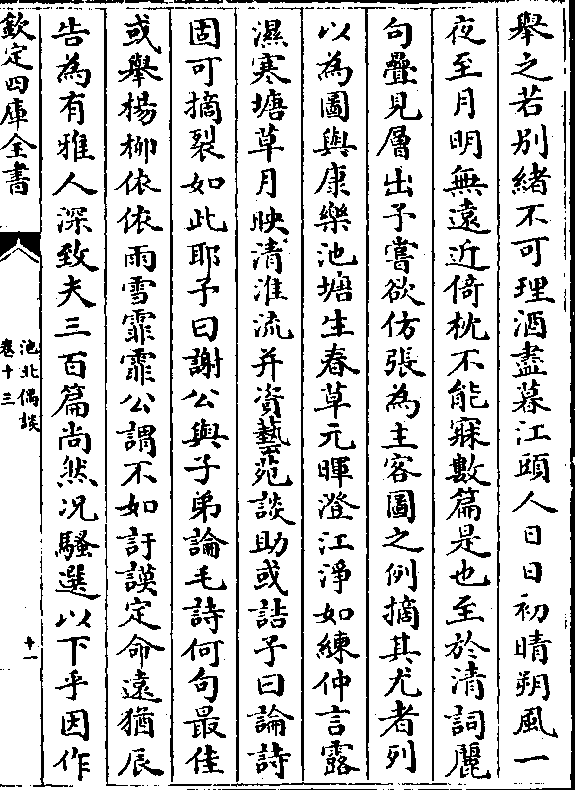 舉之若別緒不可理酒盡暮江頭人日日初晴朔風一
夜至月明無遠近倚枕不能寐數篇是也至於清詞麗
句疊見層出予嘗欲仿張為主客圖之例摘其尤者列
以為圖與康樂池塘生春草元暉澄江淨如練仲言露
濕寒塘草月映清淮流并資藝苑談助或詰予曰論詩
固可摘裂如此耶予曰謝公與子弟論毛詩何句最佳
或舉楊柳依依雨雪霏霏公謂不如訏謨定命遠猶辰
告為有雅人深致夫三百篇尚然况騷選以下乎因作
欽定四庫全書
池北偶談
卷十三
十一